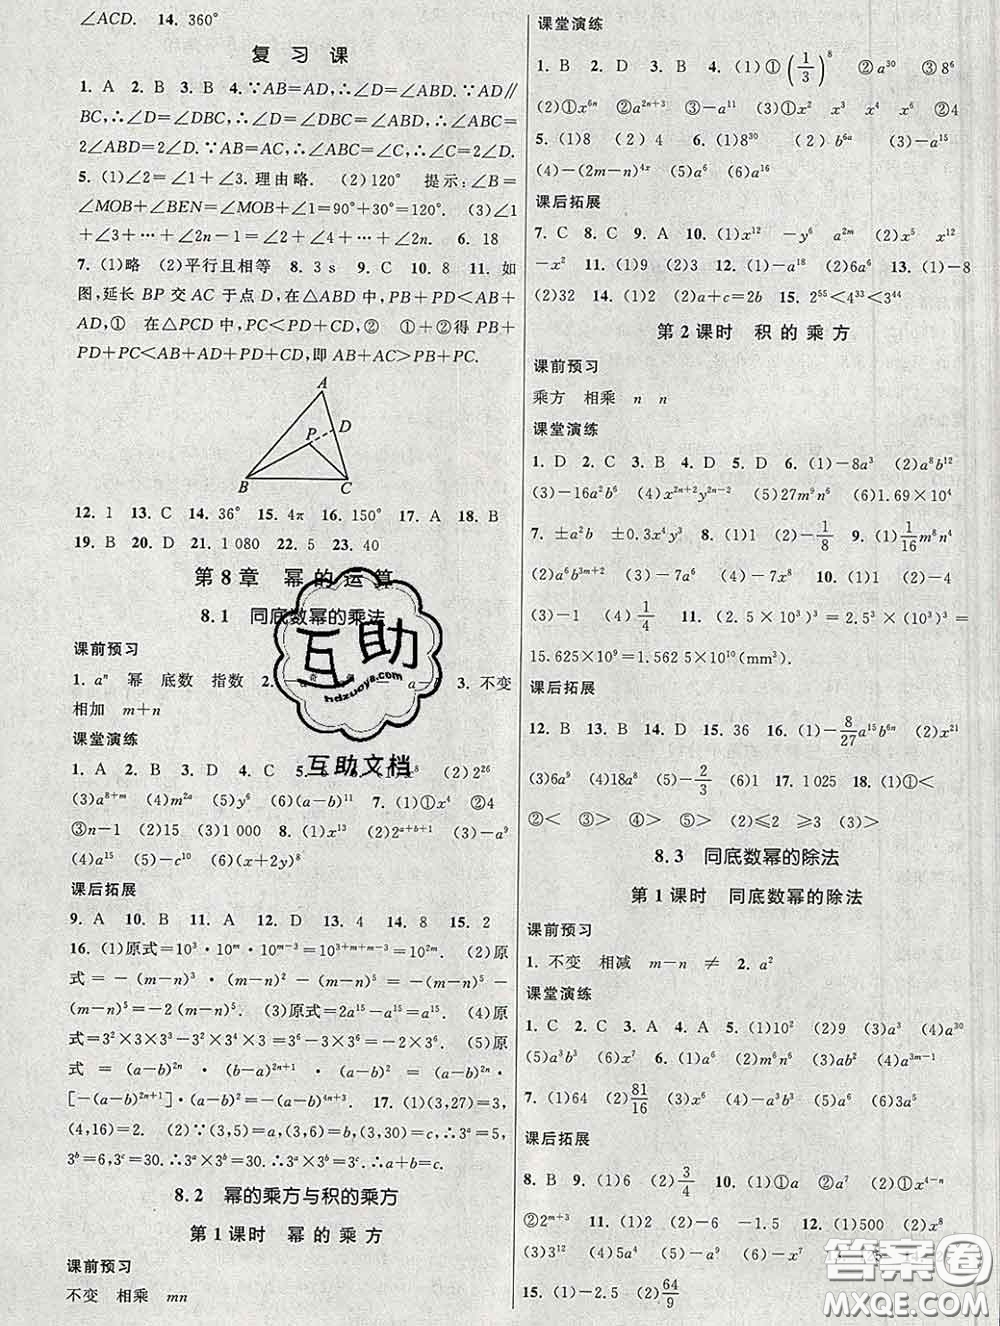 ∠ACD.  14. 360°
复 习 课
1. A  2. B  3. B  4. ∵AB=AD,∴∠D=∠ABD. ∵AD∥
BC,∴∠D=∠DBC,∴∠D=∠DBC=∠ABD,∴∠ABC=
2∠ABD=2∠D. 又∵AB=AC,∴∠ABC=∠C,∴∠C=2∠D.
5. (1)∠2=∠1+∠3. 理由略.  (2)120°  提示:∠B=
∠MOB+∠BEN=∠MOB+∠1=90°+30°=120°.  (3)∠1
+∠3+…+∠2n-1=∠2+∠4+…+∠2n  6. 18
7. (1)略  (2)平行且相等  8. 3 s  9. C  10. 8  11. 如
图,延长 BP 交 AC 于点 D,在△ABD 中,PB+PD<AB+
AD,①  在△PCD 中,PC<PD+CD,②  ①+②得 PB+
PD+PC<AB+AD+PD+CD,即 AB+AC>PB+PC.
A
P
D
B
C
12. 1  13. C  14. 36°  15. 4π  16. 150°  17. A  18. B
19. B  20. D  21. 1 080  22. 5  23. 40
第 8 章  幂 的 运 算
8.1  同底数幂的乘法
课前预习
1. aⁿ  幂  底数  指数  2.  3. 不变
相加  m+n
课堂演练
1. A  2. B  3. B  4. C  5.  (2)2²⁶
(3)a⁸⁺ᵐ  (4)m²ᵃ  (5)y⁶  (6)(a-b)¹¹  7. (1)①x⁴  ②4
③n-1  (2)15  (3)1 000  8. (1)x¹³  (2)2ᵃ⁺ᵇ⁺¹  (3)-a⁹
(4)a¹⁵  (5)-c¹⁰  (6)(x+2y)⁸
课后拓展
9. A  10. B  11. A  12. D  13. 4  14. 8  15. 2
16. (1)原式=10³·10ᵐ·10ᵐ⁻³=10³⁺ᵐ⁺ᵐ⁻³=10²ᵐ.  (2)原
式=-(m-n)³·(m-n)²·(m-n)⁵-(m-n)⁵=
-(m-n)⁵.  (3)原式=2a¹⁵-a¹⁵=a¹⁵.  (4)原
式=3²×3×3³-3²×3⁴×3=3⁶-3×3⁶=-2×3⁶.  (5)原
式=(a-b)²ⁿ·(a-b)²ⁿ⁺¹·(a-b)²=
[-(a-b)²ⁿ⁺¹]·(a-b)²=-(a-b)⁴ⁿ⁺³.  17. (1)(3,27)=3,
(4,16)=2.  (2)∵(3,5)=a,(3,6)=b,(3,30)=c,∴3ᵃ=5,
3ᵇ=6,3ᶜ=30. ∴3ᵃ×3ᵇ=30. ∴3ᵃ×3ᵇ=3ᶜ. ∴a+b=c.
8.2  幂的乘方与积的乘方
第 1 课时  幂 的 乘 方
课前预习
不变  相乘  mn
课堂演练
1. B  2. D  3. B  4. (1)①(1/3)⁸  ②a³⁰  ③8⁶
(2)①x⁶ⁿ  ②a²ⁿ⁺³  ③-a¹¹  (3)①x²  x³  x⁴  x⁶  ②4
5. (1)8  (2)4  6. (1)8³⁰  (2)b⁶ᵃ  (3)-a¹⁵
(4)-(2m-n)⁴ˣ  (5)a⁶  (6)a¹⁶
课后拓展
7. C  8. C  9. A  10. (1)x¹²  -y⁶  a²ᵐ  (2)x⁵  x⁷
-x²  11. (1)9  (2)4  (3)8  12. (1)-a¹⁸  (2)6a⁶  13. (1)-8
(2)32  14. (1)2  (2)a+c=2b  15. 2⁵⁵<4³³<3⁴⁴
第 2 课时  积 的 乘 方
课前预习
乘方  相乘  n  n
课堂演练
1. D  2. C  3. D  4. D  5. D  6. (1)-8a³  (2)a⁸b¹²
(3)-16a⁵  (4)x²ⁿ⁺²y²ⁿ⁻²  (5)27m⁹n⁶  (6)1.69×10⁴
7. ±a²b  ±0.3x⁴y³  8. (1)1  (2)-1/8  9. (1)1/16m⁸n⁴
(2)a⁶b³ᵐ⁺³  (3)-a³  (4)0  10. (1)8x¹²  (2)-a⁸
(3)-1  (4)1/4  11. (2.5×10³)³=2.5³×(10³)³=
15.625×10⁹=1.562 5×10¹⁰(mm³).
课后拓展
12. B  13. B  14. D  15. 36  16. (1)-8/27a¹⁵b⁶ⁿ  (2)x²¹
(3)6a⁹  (4)18a⁶  (5)-2/3  17. 1 025  18. (1)①<
②<  ③>  ④>  ⑤>  (2)≤2  ≥3  (3)>
8.3  同底数幂的除法
第 1 课时  同底数幂的除法
课前预习
1. 不变  相减  m-n  ≠  2. a²
课堂演练
1. C  2. C  3. A  4. A  5. (1)10²  (2)9  (3)a³  (4)a³⁰
(5)a³b³  (6)x⁷  6. (1)a⁶  (2)m⁶n⁶  (3)ab²  (4)a³ᵐ⁻¹
7. (1)64  (2)81/16  8. (1)a⁵  (2)-a³b³  (3)a⁵
课后拓展
8. B  9. (1)6  (2)3/4  10. (1)①a  ②a⁷  (2)①x⁴⁻ⁿ
②2ᵐ⁺³  11. (1)2  -6  -1.5  12. (1)500  (2)x⁸
(3)3¹²  (4)5a⁴  (5)-a⁹  (6)-x⁷
15. (1)-2.5  (2)64/9
互助
hdzuoye8.com
互助文档
答案圈
MXQE.COM